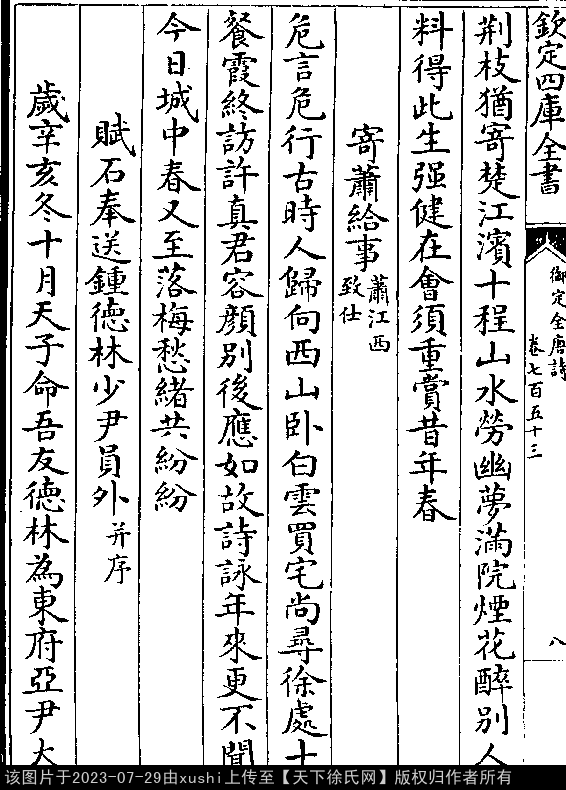 欽定四庫全書
御定全唐詩
卷七百五十三
八
荆枝猶寄楚江濱十程山水勞幽夢滿院煙花醉别人
料得此生强健在會須重賞昔年春
寄蕭給事蕭江西致仕
危言危行古時人歸向西山卧白雲買宅尚尋徐處士
餐霞終訪許真君容顔别後應如故詩詠年來更不聞
今日城中春又至落梅愁緒共紛紛
賦石奉送鍾德林少尹員外并序
歲辛亥冬十月天子命吾友德林為東府亞尹大
该图片于2023-07-29由xushi上传至【天下徐氏网】版权归作者所有